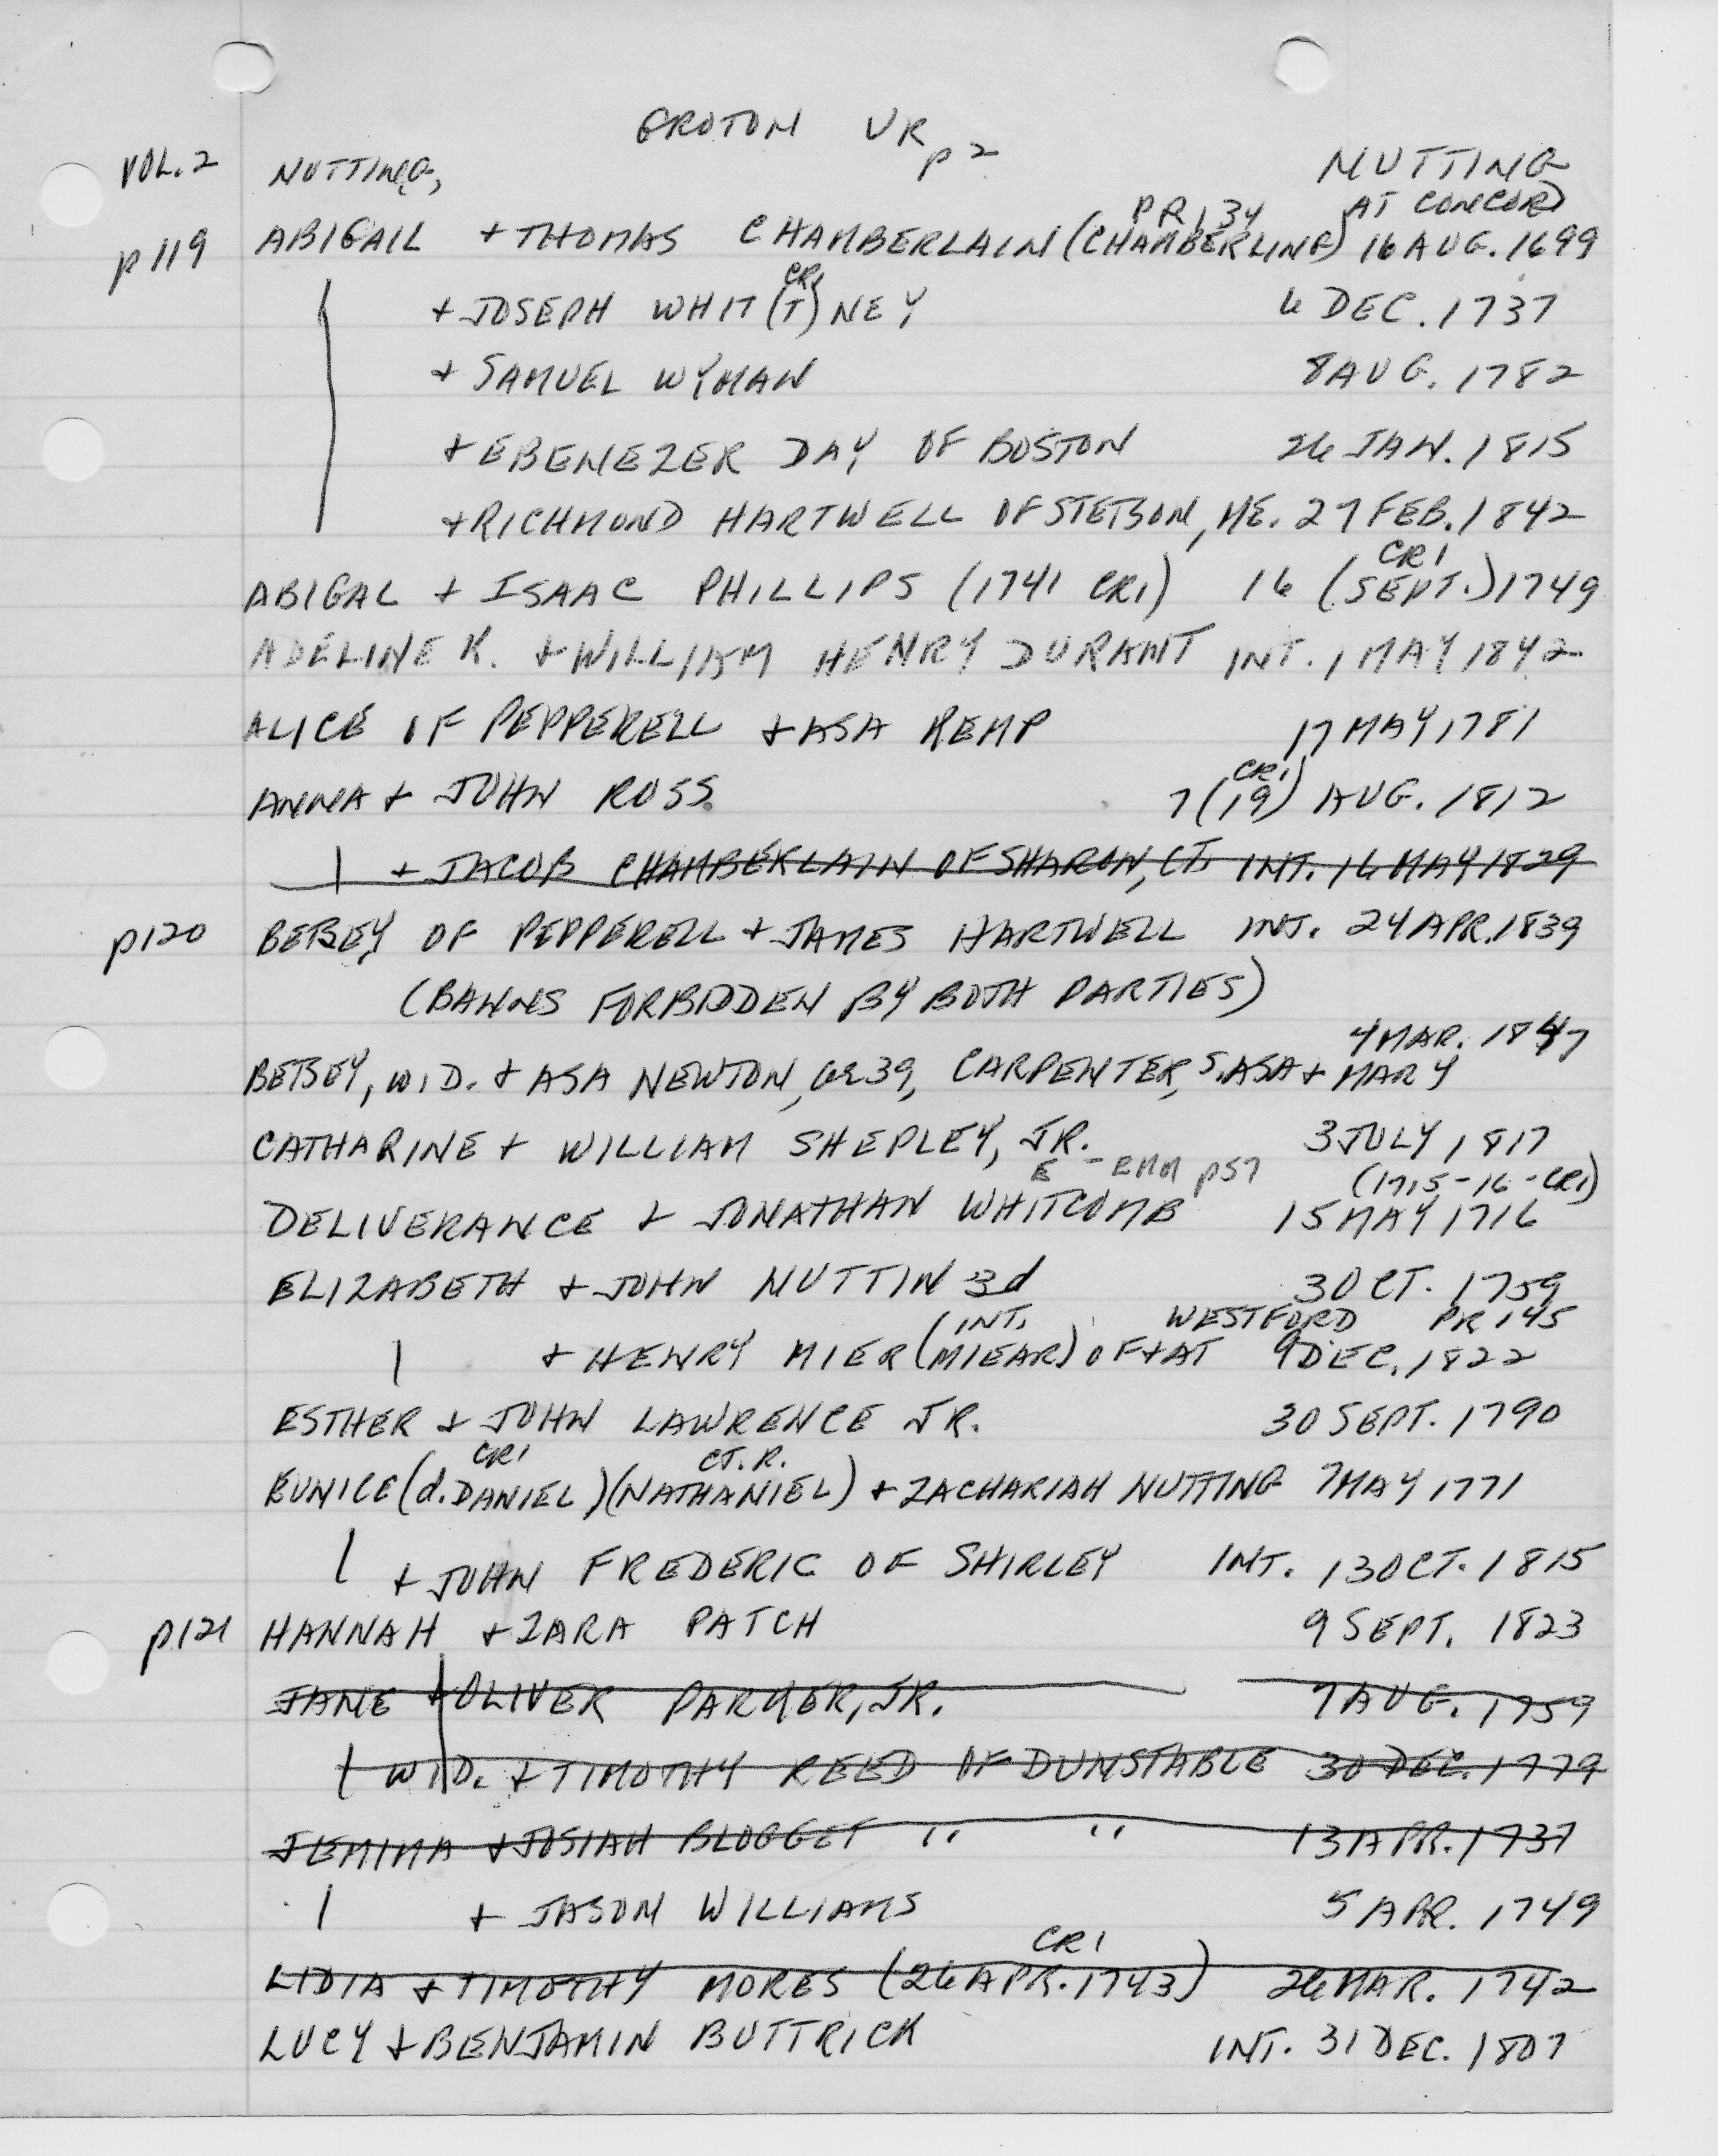 GROTON VR p2
VOL. 2 NUTTING, NUTTING
PR 134 AT CONCORD
p119 ABIGAIL + THOMAS CHAMBERLAIN (CHAMBERLING) 16 AUG. 1699
CR1
+ JOSEPH WHIT(T)NEY 6 DEC. 1737
+ SAMUEL WYMAN 8 AUG. 1782
+ EBENEZER DAY OF BOSTON 26 JAN. 1815
+ RICHMOND HARTWELL OF STETSON, ME. 27 FEB. 1842
CR1
ABIGAL + ISAAC PHILLIPS (1741 CR1) 16 (SEPT.) 1749
ADELINE K. + WILLIAM HENRY DURANT INT. 1 MAY 1842
ALICE OF PEPPERELL + ASA KEMP 17 MAY 1781
CR1
ANNA + JOHN ROSS 7 (19) AUG. 1812
+ JACOB CHAMBERLAIN OF SHARON, CT. INT. 16 MAY 1829
p120 BETSEY OF PEPPERELL + JAMES HARTWELL INT. 24 APR. 1839
(BANNS FORBIDDEN BY BOTH PARTIES)
4 MAR. 1847
BETSEY, WID. + ASA NEWTON, ae 39, CARPENTER, S. ASA + MARY
CATHARINE + WILLIAM SHEPLEY, JR. 3 JULY 1817
E - RMM p57 (1715-16-CR1)
DELIVERANCE + JONATHAN WHITCOMB 15 MAY 1716
ELIZABETH + JOHN NUTTIN 3d 3 OCT. 1759
INT. WESTFORD PR 145
+ HENRY MIER (MIEAR) OF + AT 9 DEC. 1822
ESTHER + JOHN LAWRENCE JR. 30 SEPT. 1790
CR1 CT. R.
EUNICE (d. DANIEL) (NATHANIEL) + ZACHARIAH NUTTING 7 MAY 1771
+ JOHN FREDERIC OF SHIRLEY INT. 13 OCT. 1815
p121 HANNAH + ZARA PATCH 9 SEPT. 1823
JANE + OLIVER PARKER, JR. 7 AUG. 1759
WID. + TIMOTHY REED OF DUNSTABLE 30 DEC. 1779
JEMIMA + JOSIAH BLOGGET " " 13 APR. 1737
+ JASON WILLIAMS 5 APR. 1749
CR1
LIDIA + TIMOTHY MORES (26 APR. 1743) 26 MAR. 1742
LUCY + BENJAMIN BUTTRICK INT. 31 DEC. 1807